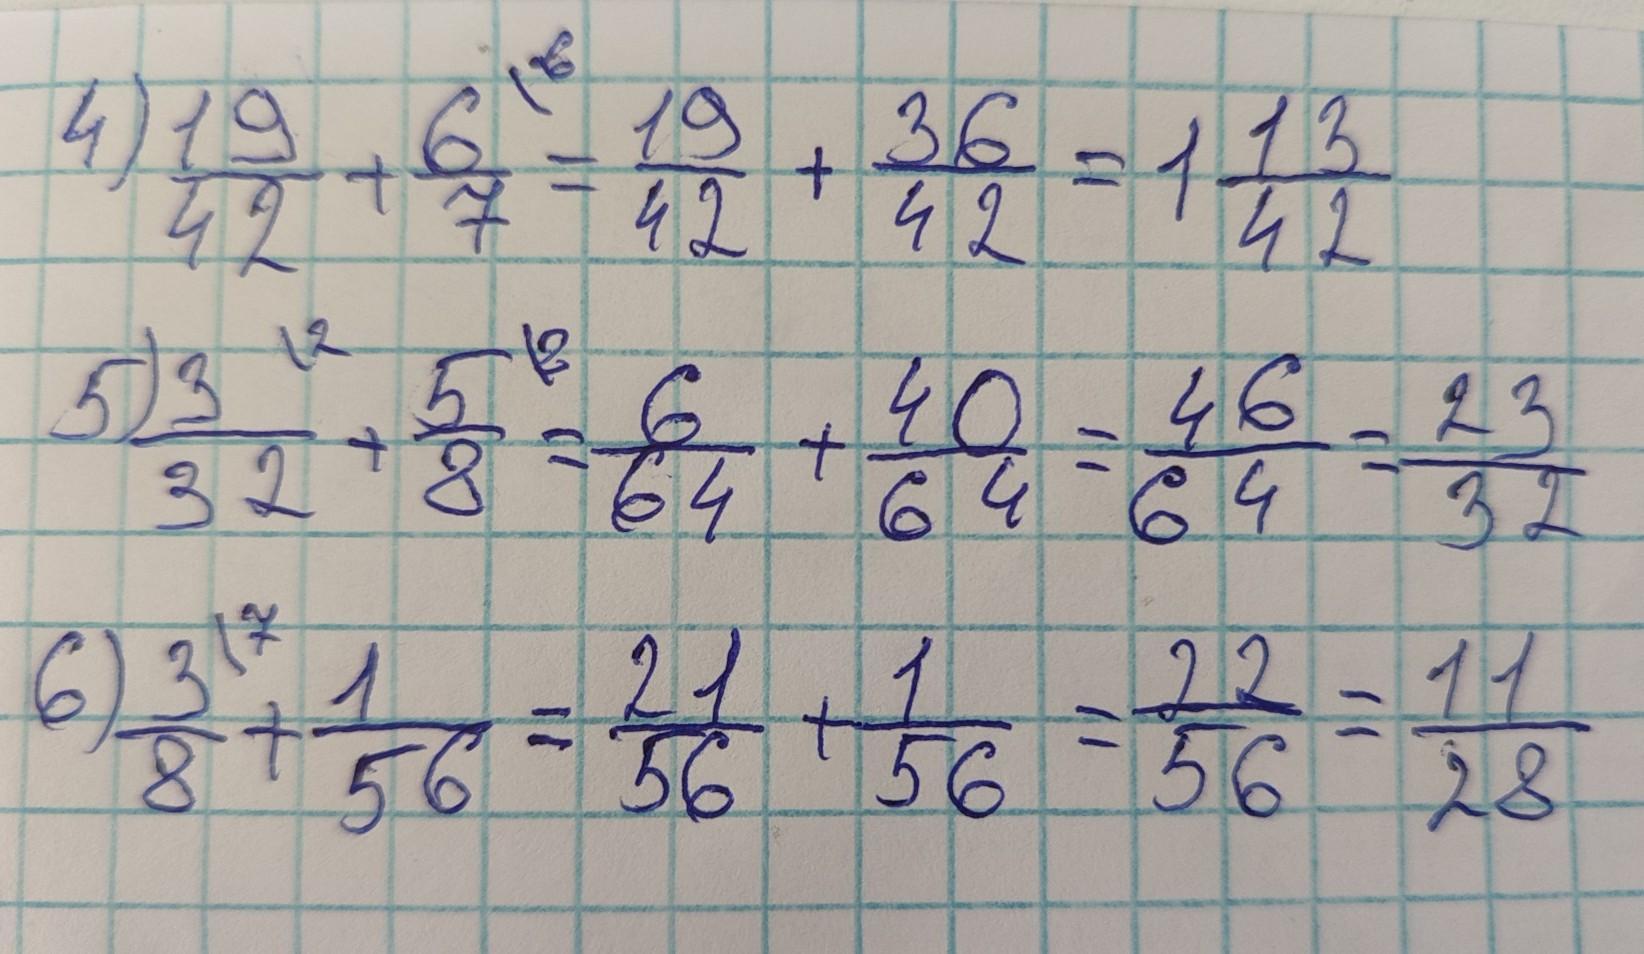 4) 19/42 + 6/7 \6 = 19/42 + 36/42 = 1 13/42
5) 3/32 \2 + 5/8 \8 = 6/64 + 40/64 = 46/64 = 23/32
6) 3/8 \7 + 1/56 = 21/56 + 1/56 = 22/56 = 11/28